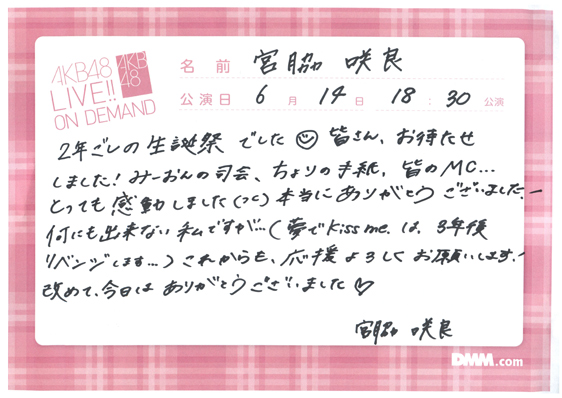 AKB48
LIVE!!
ON DEMAND
AKB
48
名前 宮脇 咲良
公演日 6月 14日 18:30 公演
2年ごしの生誕祭でした 皆さん、お待たせ
しました！みーおんの司会、ちょりの手紙、皆のMC...
とっても感動しました(つc)本当にありがとうございました！
何にも出来ない私ですが...(夢でKiss me.は、3年後
リベンジします...)これからも、応援よろしくお願いします！
改めて、今日はありがとうございました♡
宮脇 咲良
DMM.com